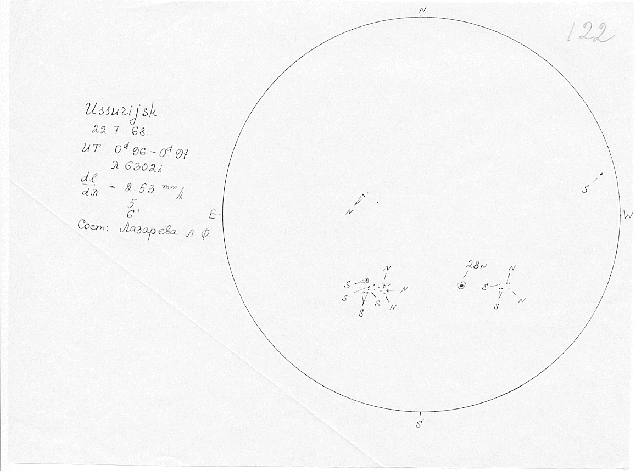 122
N
Ussurijsk
22 7 68
UT 0d 96 - 0d 97
λ 6302i
dl/dλ - 2 53 mm/Å
5
6'
Сост: Лазарева Л Ф
E
W
S
N
S
28N
N
S
S
N
S
N
N
S
N
S
S